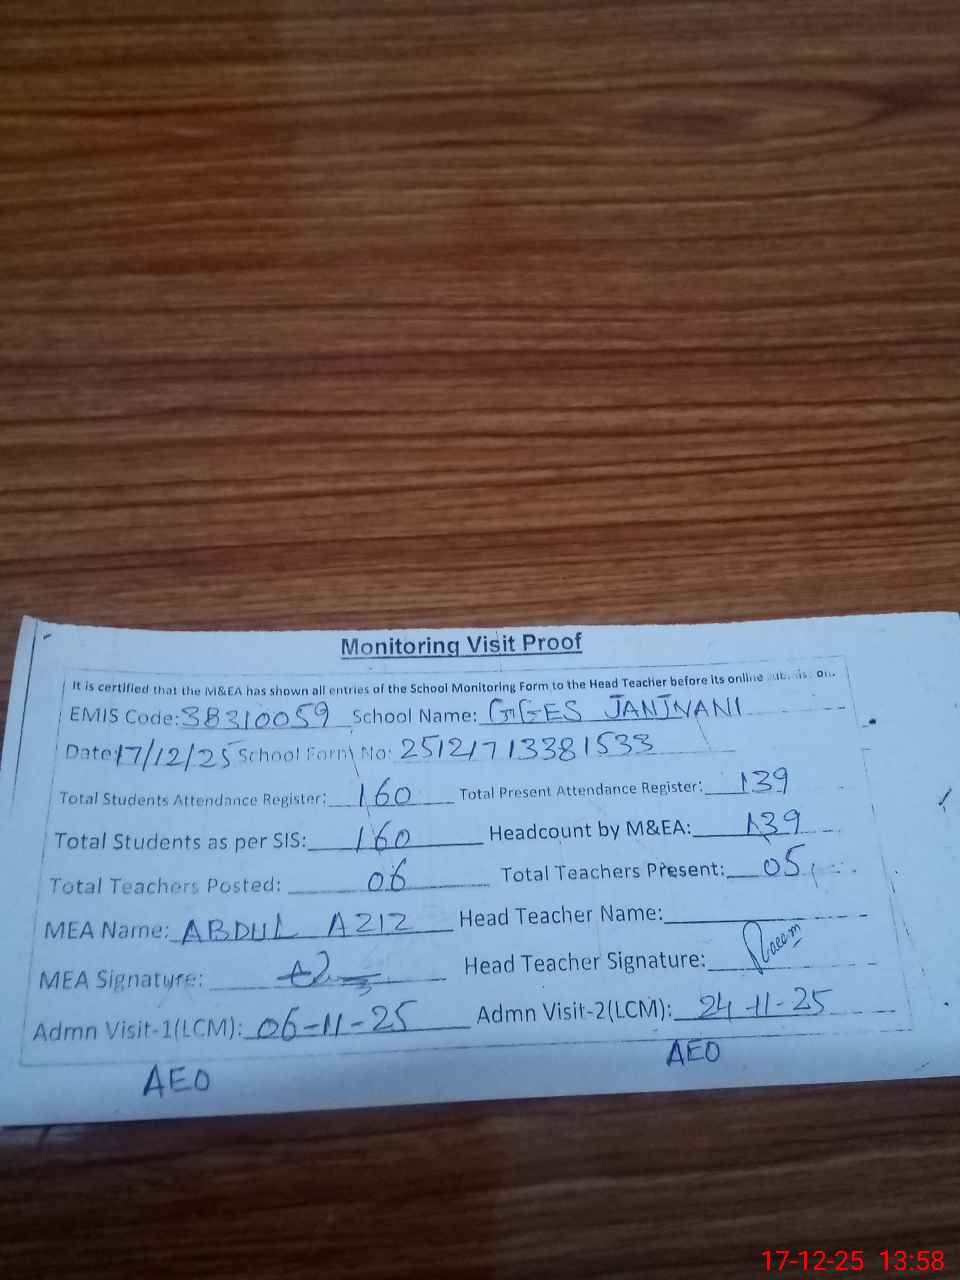 Monitoring Visit Proof
It is certified that the M&EA has shown all entries of the School Monitoring Form to the Head Teacher before its online
EMIS Code: 38310059 School Name: GGES JANJVANI
Date: 17/12/25 School Form No: 25121713381533
Total Students Attendance Register: 160 Total Present Attendance Register: 139
Total Students as per SIS: 160 Headcount by M&EA: 139
Total Teachers Posted: 06 Total Teachers Present: 05
MEA Name: ABDUL AZIZ Head Teacher Name:
MEA Signature: Head Teacher Signature:
Admn Visit-1(LCM): 06-11-25 Admn Visit-2(LCM): 24-11-25
AEO AEO
17-12-25 13:58